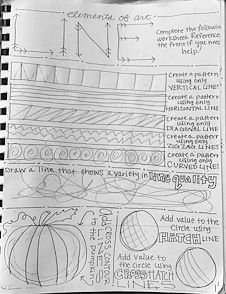 elements of art
LINE
Complete the following
worksheet. Reference
the front if you need
help!
Create a pattern
using only
VERTICAL LINES
Create a pattern
using only
HORIZONTAL LINE
Create a pattern
using only
DIAGONAL LINE
Create a pattern
using only
ZIG ZAG LINES
Create a pattern
using only
CURVED LINES
Draw a line that shows a variety in line quality
Add
CROSS CONTOUR
LINES
to the pumpkin
Add value to the
circle using
HATCH LINE
Add value
to the circle using
CROSSHATCH
LINES